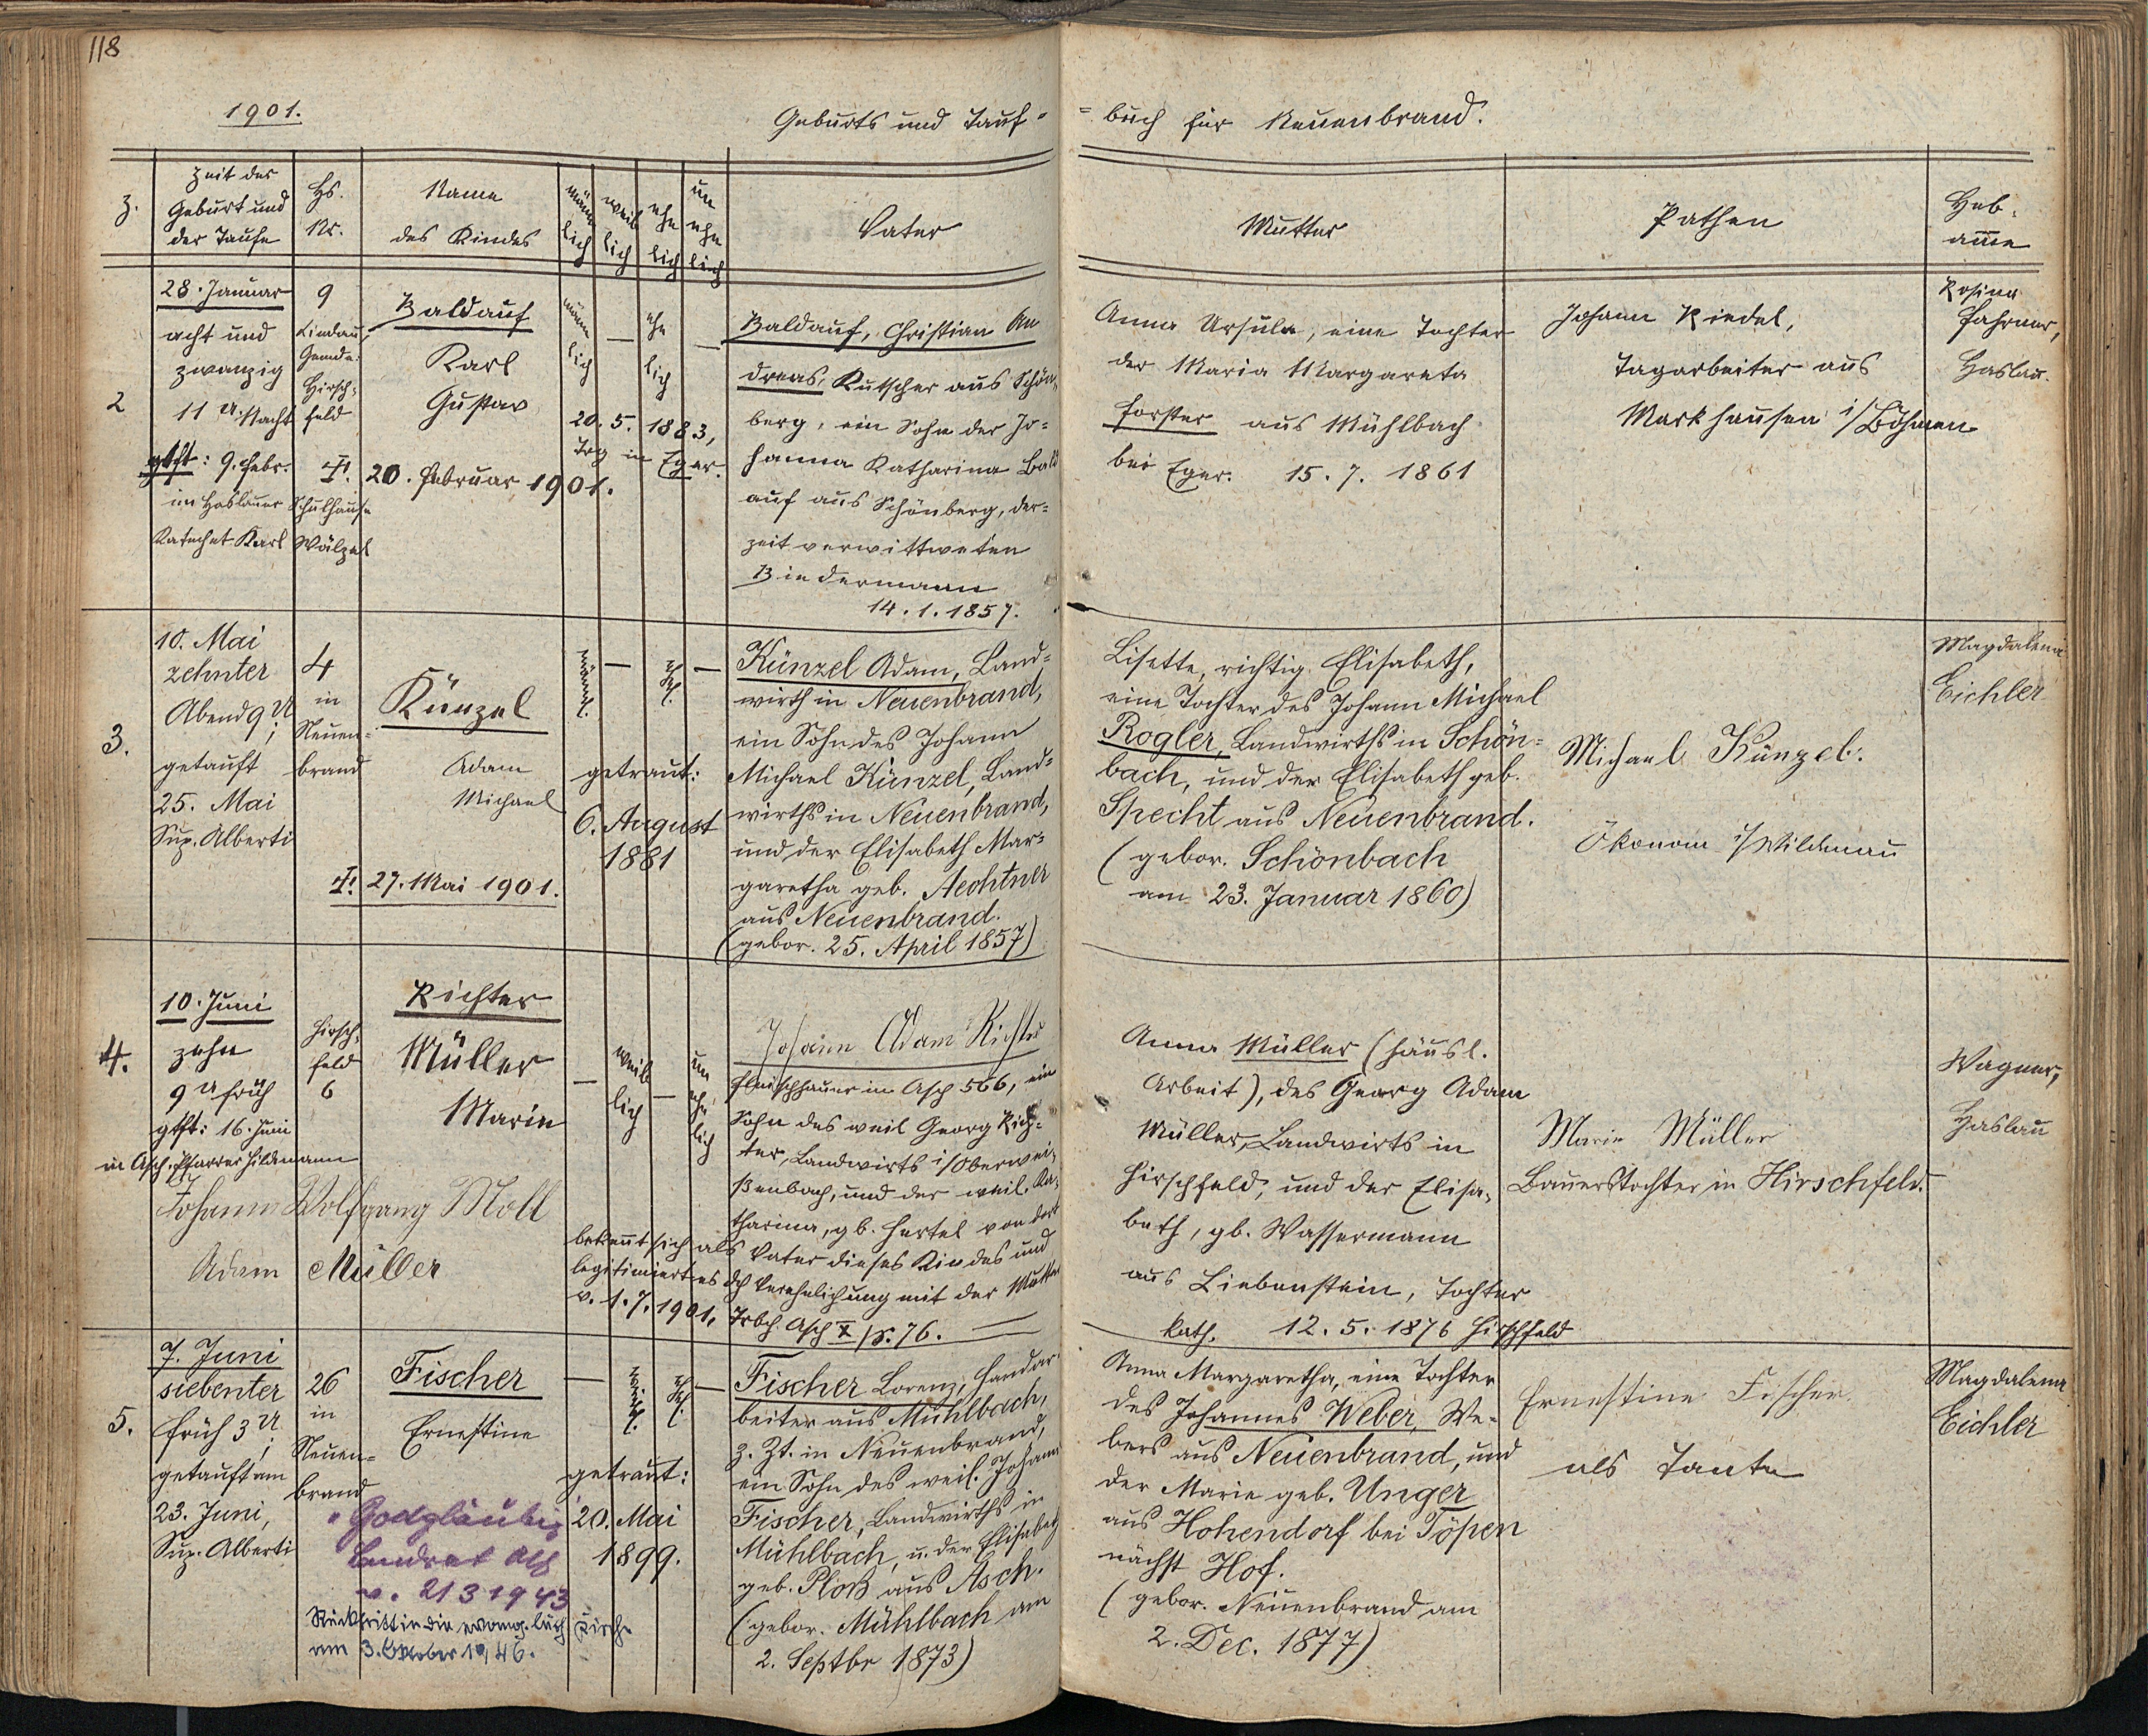 118
1901.
Geburts und Tauf=
=buch für Neuenbrand.
Z.
Zeit der
Geburt und
der Taufe
Hs.
Nr.
Name
des Kindes
männ
lich
weib
lich
ehe
lich
un
ehe
lich
Vater
Mutter
Pathen
Heb=
amme
2
28. Januar
acht und
zwanzig
11 U. Nacht
gtft: 9. Febr.
im Haslauer Schulhause
Katechet Karl Wälzel
9
Lindau,
Gemde.
Hirsch=
feld
Baldauf
Karl
Gustav
†. 20. Februar 1901.
männ
lich
—
ehe
lich
—
20. 5. 1883,
Trg in Eger.
Baldauf, Christian An
dreas, Kutscher aus Schön=
berg, ein Sohn der Jo=
hanna Katharina Bald
auf aus Schönberg, der=
zeit verwittweten
Biedermann
14. 1. 1857.
Anna Ursula, eine Tochter
der Maria Margareta
Forster aus Mühlbach
bei Eger. 15. 7. 1861
Johann Riedel,
Tagarbeiter aus
Markhausen i/Böhmen
Rosina
Fahrner,
Haslau.
3.
10. Mai
zehnter
Abend 9 U;
getauft
25. Mai
Sup. Alberti
4
in
Neuen=
brand
Künzel
Adam
Michael
†. 27. Mai 1901.
männl.
—
ehel.
—
getraut:
6. August
1881
Künzel Adam, Land=
wirth in Neuenbrand,
ein Sohn des Johann
Michael Künzel, Land=
wirths in Neuenbrand,
und der Elisabeth Mar=
garetha geb. Aechtner
aus Neuenbrand.
(gebor. 25. April 1857)
Lisette, richtig Elisabeth,
eine Tochter des Johann Michael
Rogler, Landwirths in Schön=
bach, und der Elisabeth geb.
Specht aus Neuenbrand.
(gebor. Schönbach
am 23. Januar 1860)
Michael Künzel.
Ökonom i/Wildenau
Magdalena
Eichler
4.
10. Juni
zehn
9 U früh
gtft: 16. Juni
in Asch, Pfarrer Hildemann
Hirsch=
feld
6
Richter
Müller
Marie
Johann Wolfgang Moll
Adam Müller
—
weib
lich
—
un
ehe
lich
Johann Adam Richter
Fleischhauer in Asch 566, ein
Sohn des weil Georg Rich=
ter, Landwirts i/Oberwei=
ßenbach, und der weil. Ka=
tharina, gb. Hertel von dort
bekennt sich als Vater dieses Kindes und
legitimiert es dch Verehelichung mit der Mutter
v. 1. 7. 1901. Trbch Asch X/p. 76.
Anna Müller (häusl.
Arbeit), des Georg Adam
Müller, Landwirts in
Hirschfeld, und der Elisa=
beth, gb. Wassermann
aus Liebenstein, Tochter
kath. 12. 5. 1876 Hirschfeld
Marie Müller
Bauerstochter in Hirschfeld.
Wagner,
Haslau
5.
7. Juni
siebenter
früh 3 U;
getauft am
23. Juni,
Sup. Alberti
26
in
Neuen=
brand
Fischer
Ernestine
Godgläubig
Landrat Asch
v. 21 3 1943
Rücktritt in die evang. luth Kirche
am 3. Oktober 1946.
—
weibl.
ehel.
—
getraut:
20. Mai
1899.
Fischer Lorenz, Handar
beiter aus Mühlbach,
z. Zt. in Neuenbrand,
ein Sohn des weil. Johann
Fischer, Landwirths in
Mühlbach, u. der Elisabeth
geb. Ploß aus Asch.
(gebor. Mühlbach am
2. Septbr 1873)
Anna Margaretha, eine Tochter
des Johannes Weber, We=
bers aus Neuenbrand, und
der Marie geb. Unger
aus Hohendorf bei Töpen
nächst Hof.
(gebor. Neuenbrand am
2. Dec. 1877)
Ernestine Fischer
als Tante
Magdalena
Eichler